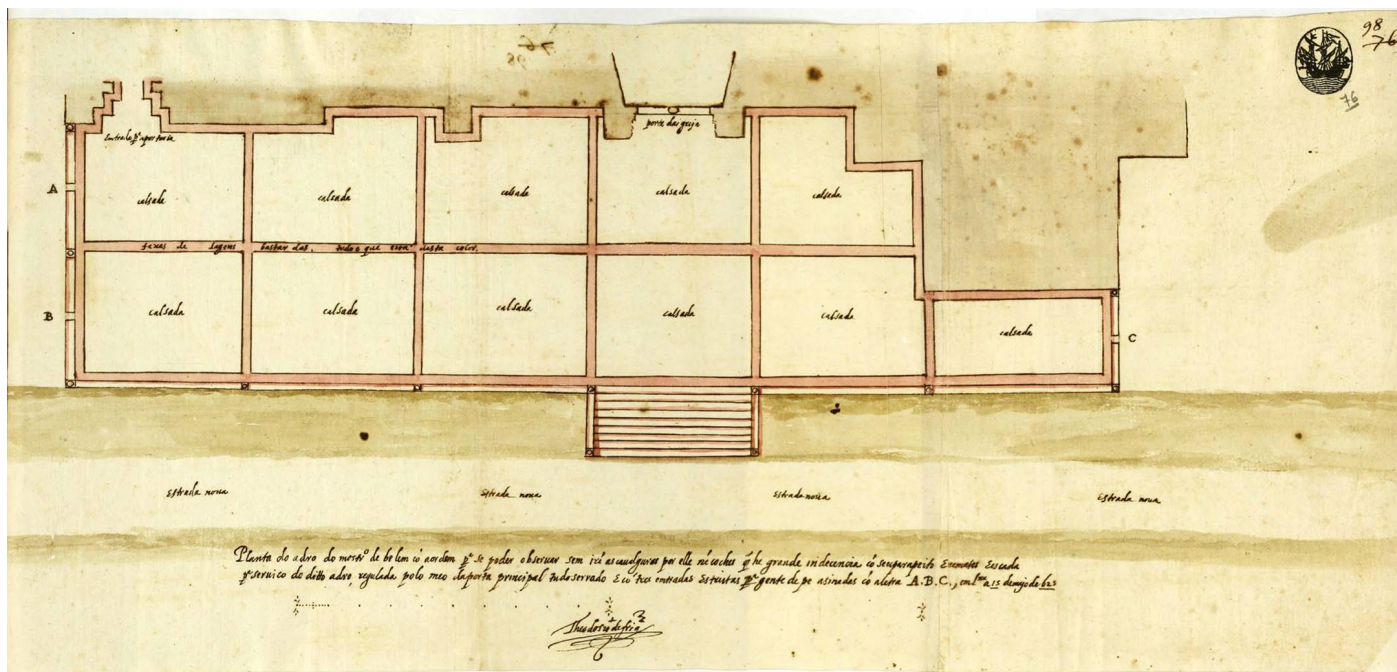 98
76
76
Entrada p.ª aportaria
porta da igreja
A
calsada
calsada
calsada
calsada
calsada
faxas de lagens bastardas. tudo o que esta desta color.
B
calsada
calsada
calsada
calsada
calsada
calsada
C
Estrada noua
Estrada noua
Estrada noua
Estrada noua
Planta do adro do mostr.º de belem cõ aordem p.ª se poder obseruar sem irẽ as caualguras por elle nẽ coches q̃ he grande indecencia cõ seu parapeito E remates Escada
p.ª seruico do ditto adro regulada polo meo da porta principal tudo serrado E cõ tres entradas Estreitas p.ª gente de pe asinadas cõ aletra A.B.C., em a 15 de de 625
Theodosio de frias